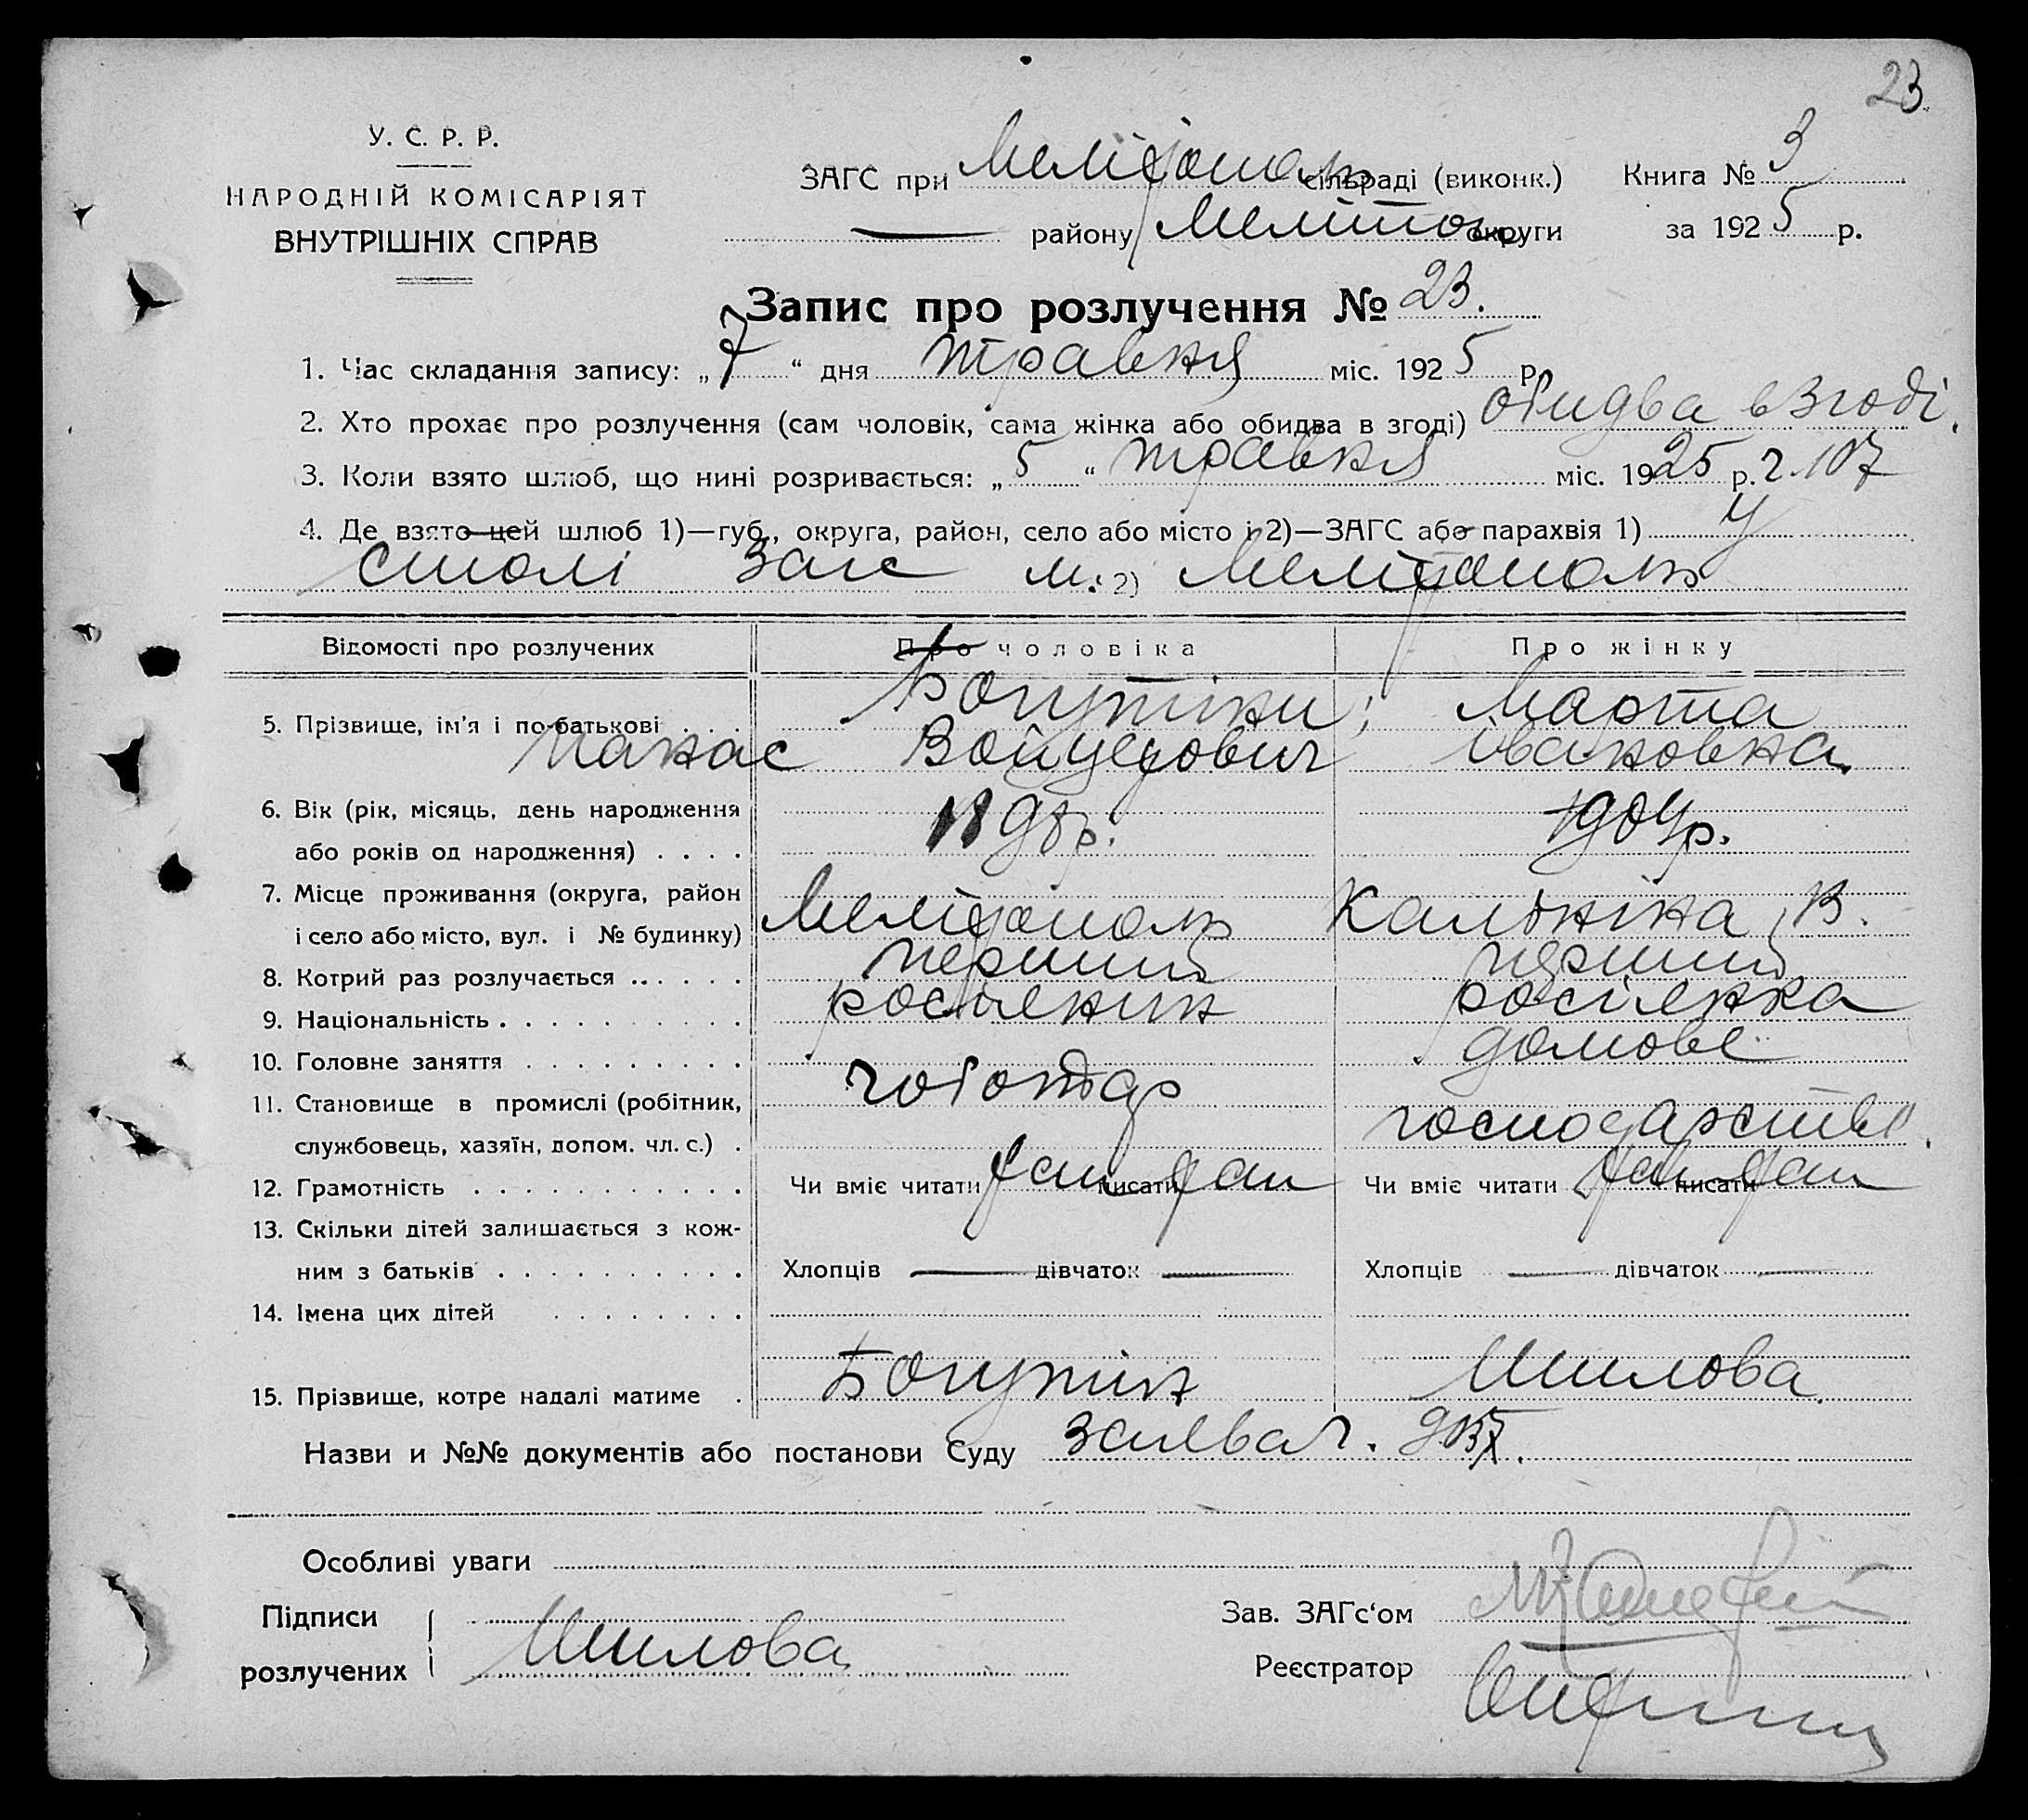 23
У. С. Р. Р.
НАРОДНІЙ КОМІСАРІЯТ
ВНУТРІШНІХ СПРАВ
ЗАГС при Мелітополь сільраді (виконк.) Книга № 3
— району Меліто округи за 1925 р.
Запис про розлучення № 23.
1. Час складання запису: „7“ дня травня міс. 1925 р.
2. Хто прохає про розлучення (сам чоловік, сама жінка або обидва в згоді) обидва в згоді.
3. Коли взято шлюб, що нині розривається: „5“ травня міс. 1925 р. 2.107
4. Де взято цей шлюб 1)—губ., округа, район, село або місто і 2)—ЗАГС або парахвія 1) у
столі Загс м. 2) Мелітополь
Відомості про розлучених Про чоловіка Про жінку
5. Прізвище, ім'я і по-батькові . . . . Богутіни; Марта
Войцехович Івановна.
6. Вік (рік, місяць, день народження
або років од народження) . . . . 1898р. 1904р.
7. Місце проживання (округа, район
і село або місто, вул. і № будинку) Мелітополь Калініна, 13.
8. Котрий раз розлучається . . . . . . перший перший
9. Національність . . . . . . . . . . росіянин росіянка
10. Головне заняття . . . . . . . . . домове
11. Становище в промислі (робітник, чоботар
службовець, хазяїн, допом. чл. с.) . господарство.
12. Грамотність . . . . . . . . . . . Чи вміє читати так писати так Чи вміє читати так писати так
13. Скільки дітей залишається з кож-
ним з батьків . . . . . . . . . . Хлопців — дівчаток — Хлопців — дівчаток —
14. Імена цих дітей . . . . . . . .
15. Прізвище, котре надалі матиме . Богутін Шилова
Назви и №№ документів або постанови Суду заява ч.
Особливі уваги
Підписи Зав. ЗАГс'ом
розлучених Шилова Реєстратор